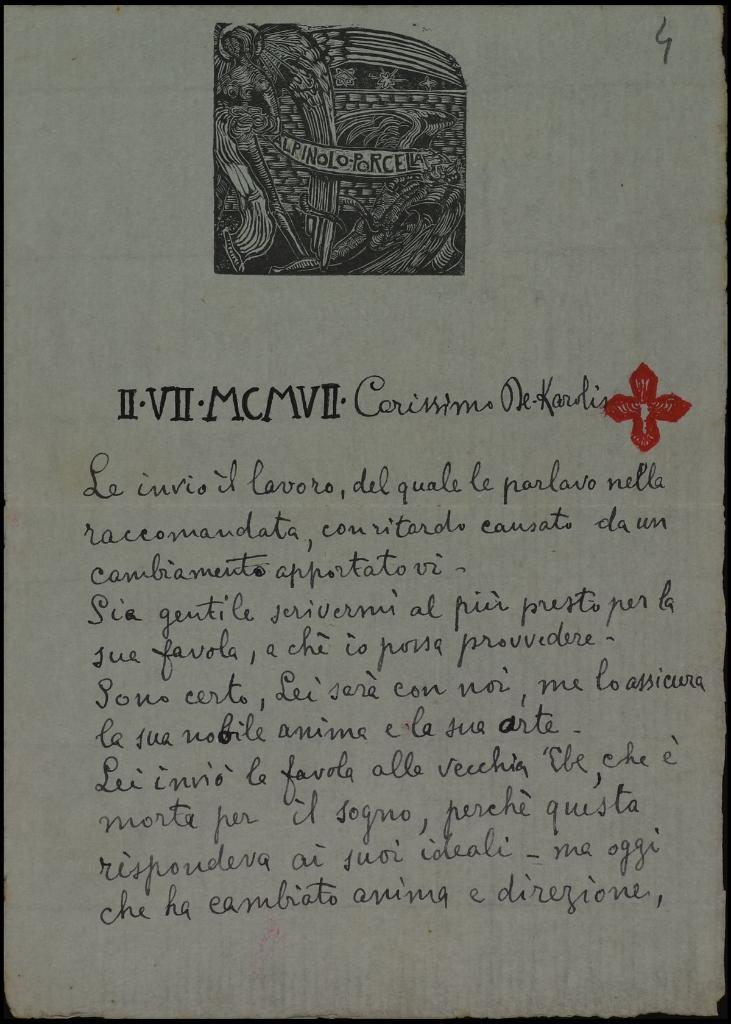 4
ALPINOLO·PORCELLA
II·VII·MCMVII· Carissimo De-Karolis
Le invio il lavoro, del quale le parlavo nella
raccomandata, con ritardo causato da un
cambiamento apportatovi -
Sia gentile scrivermi al più presto per la
sua favola, a chè io possa provvedere -
Sono certo, Lei sarà con noi, me lo assicura
la sua nobile anima e la sua arte -
Lei inviò la favola alla vecchia "Ebe, che è
morta per il sogno, perchè questa
rispondeva ai suoi ideali - ma oggi
che ha cambiato anima e direzione,